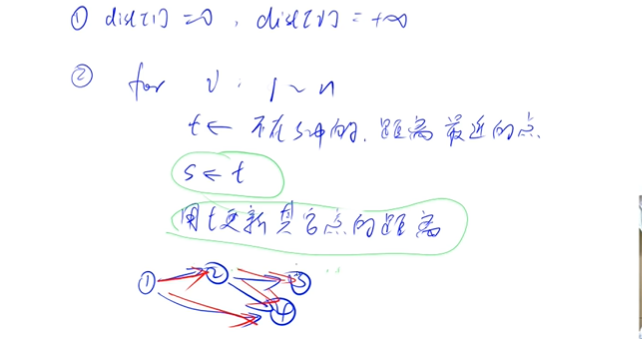 ① dist[1]=0, dist[v]=+∞
② for v: 1~n
t ← 不在s中的, 距离最近的点.
s ← t
用t更新其它点的距离
① ② ③
④